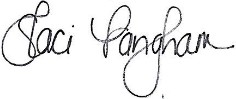 Staci Langham